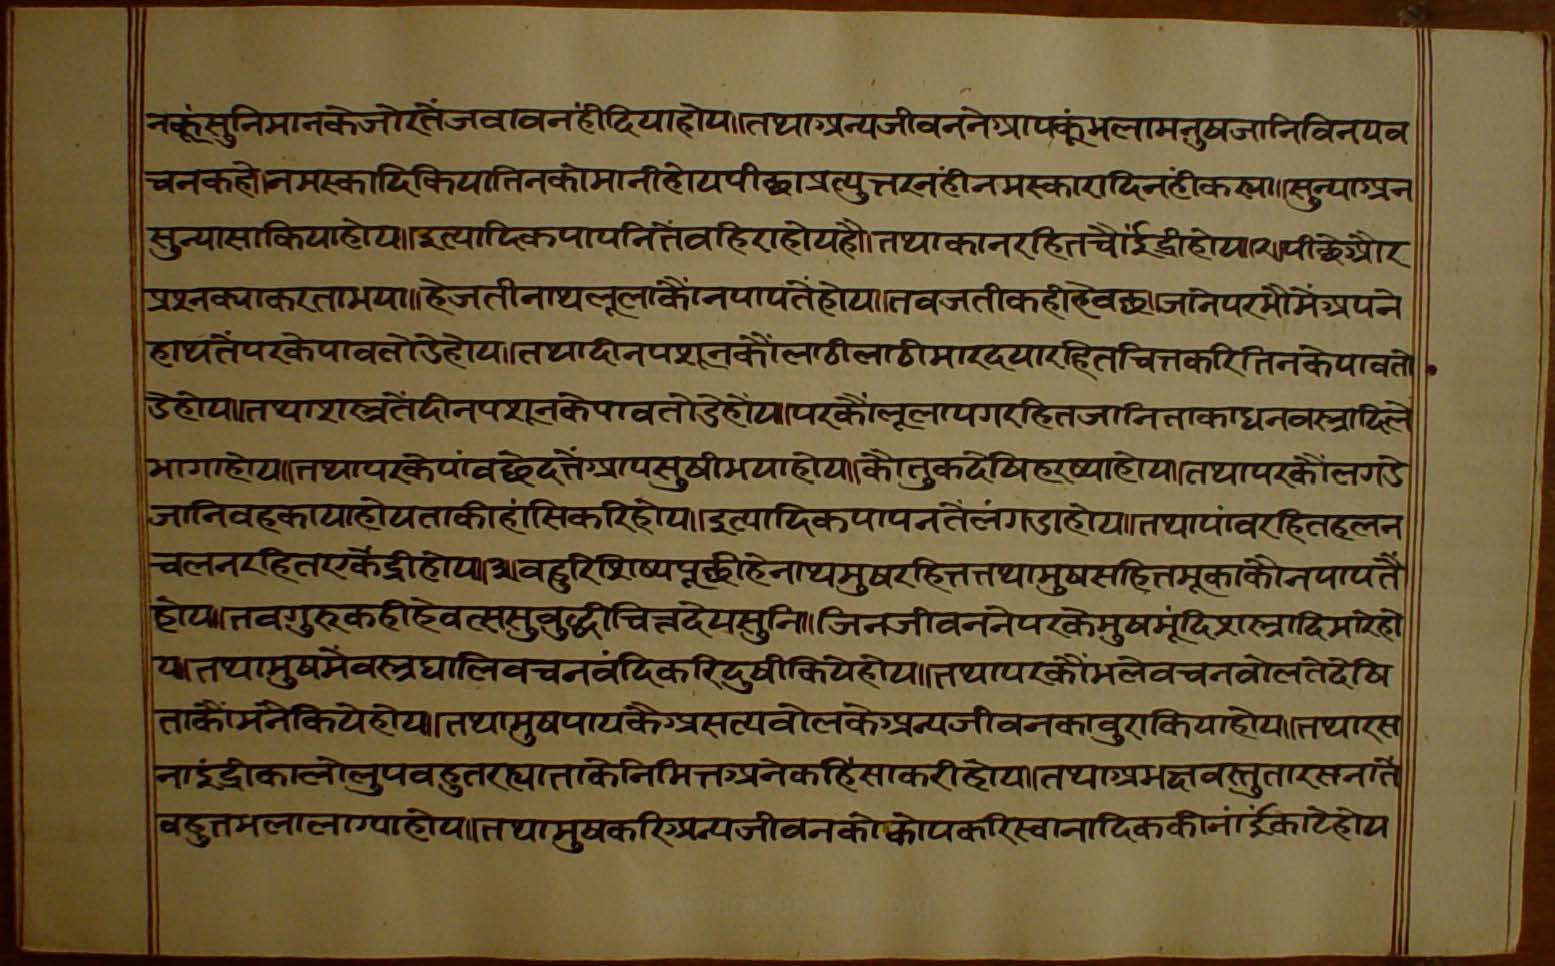 नकूंसुनिमानकेजोरतैंजवावनहींदियाहोय॥तथाअन्यजीवननेआपकूंभलामनुषजानिविनयव
चनकहे।नमस्कादिकियातिनकोमानीहोयपीछाप्रत्युत्तरनहींनमस्कारादिनहींकस्या॥सुन्याअन
सुन्यासाकियाहोय॥इत्यादिकपापनितैंवहिराहोयहै।तथाकानरहितचौईंद्रीहोय।२।पीछेऔर
प्रश्नक्याकरताभया॥हेजतीनाथलूलाकौंनपापतैंहोय॥तवजतीकहीहेवछ।जानेपरभौमेंअपने
हाथतैंपरकेपावतोडेहोय॥तथादीनपशूनकौंलाठीलाठीमारदयारहितचित्तकरितिनकेपावतो
डेहोय॥तथाशस्त्रतैंदीनपशूनकेपावतोडेहोय॥परकौंलूलापगरहितजानिताकाधनवस्त्रादिले
भागाहोय॥तथापरकेपांवछेदतैंआपसुषीभयाहोय॥कौतुकदेषिहरष्याहोय॥तथापरकौंलगडे
जानिवहकायाहोयताकीहांसिकरिहोय॥इत्यादिकपापनतैंलंगडाहोय॥तथापांवरहितहलन
चलनरहितएकैंद्रीहोय।३।वहुरिशिष्यपूछीहेनाथमुषरहिततथामुषसहितमूकाकौनपापतैं
होय॥तवगुरूकहीहेवत्ससुवुद्धीचित्तदेयसुनि॥जिनजीवननेपरकेमुषमूंदिशस्त्रादिमारेहो
य॥तथामुषमैंवस्त्रघालिवचनवंदिकरिदुषीकियेहोय॥तथापरकौंभलेवचनवोलतेदेषि
ताकौंमनैकियेहोय॥तथामुषपायकैअसत्यवोलकेअन्यजीवनकावुराकियाहोय॥तथारस
नाइंद्रीकालोलुपवहुतरह्याताकेनिमित्तअनेकहिंसाकरीहोय॥तथाअभक्षवस्तुतारसनातैं
वहुतभलालाग्याहोय॥तथामुषकरिअन्यजीवनकोकोपकरिस्वानादिककीनांईंकाटेहोय